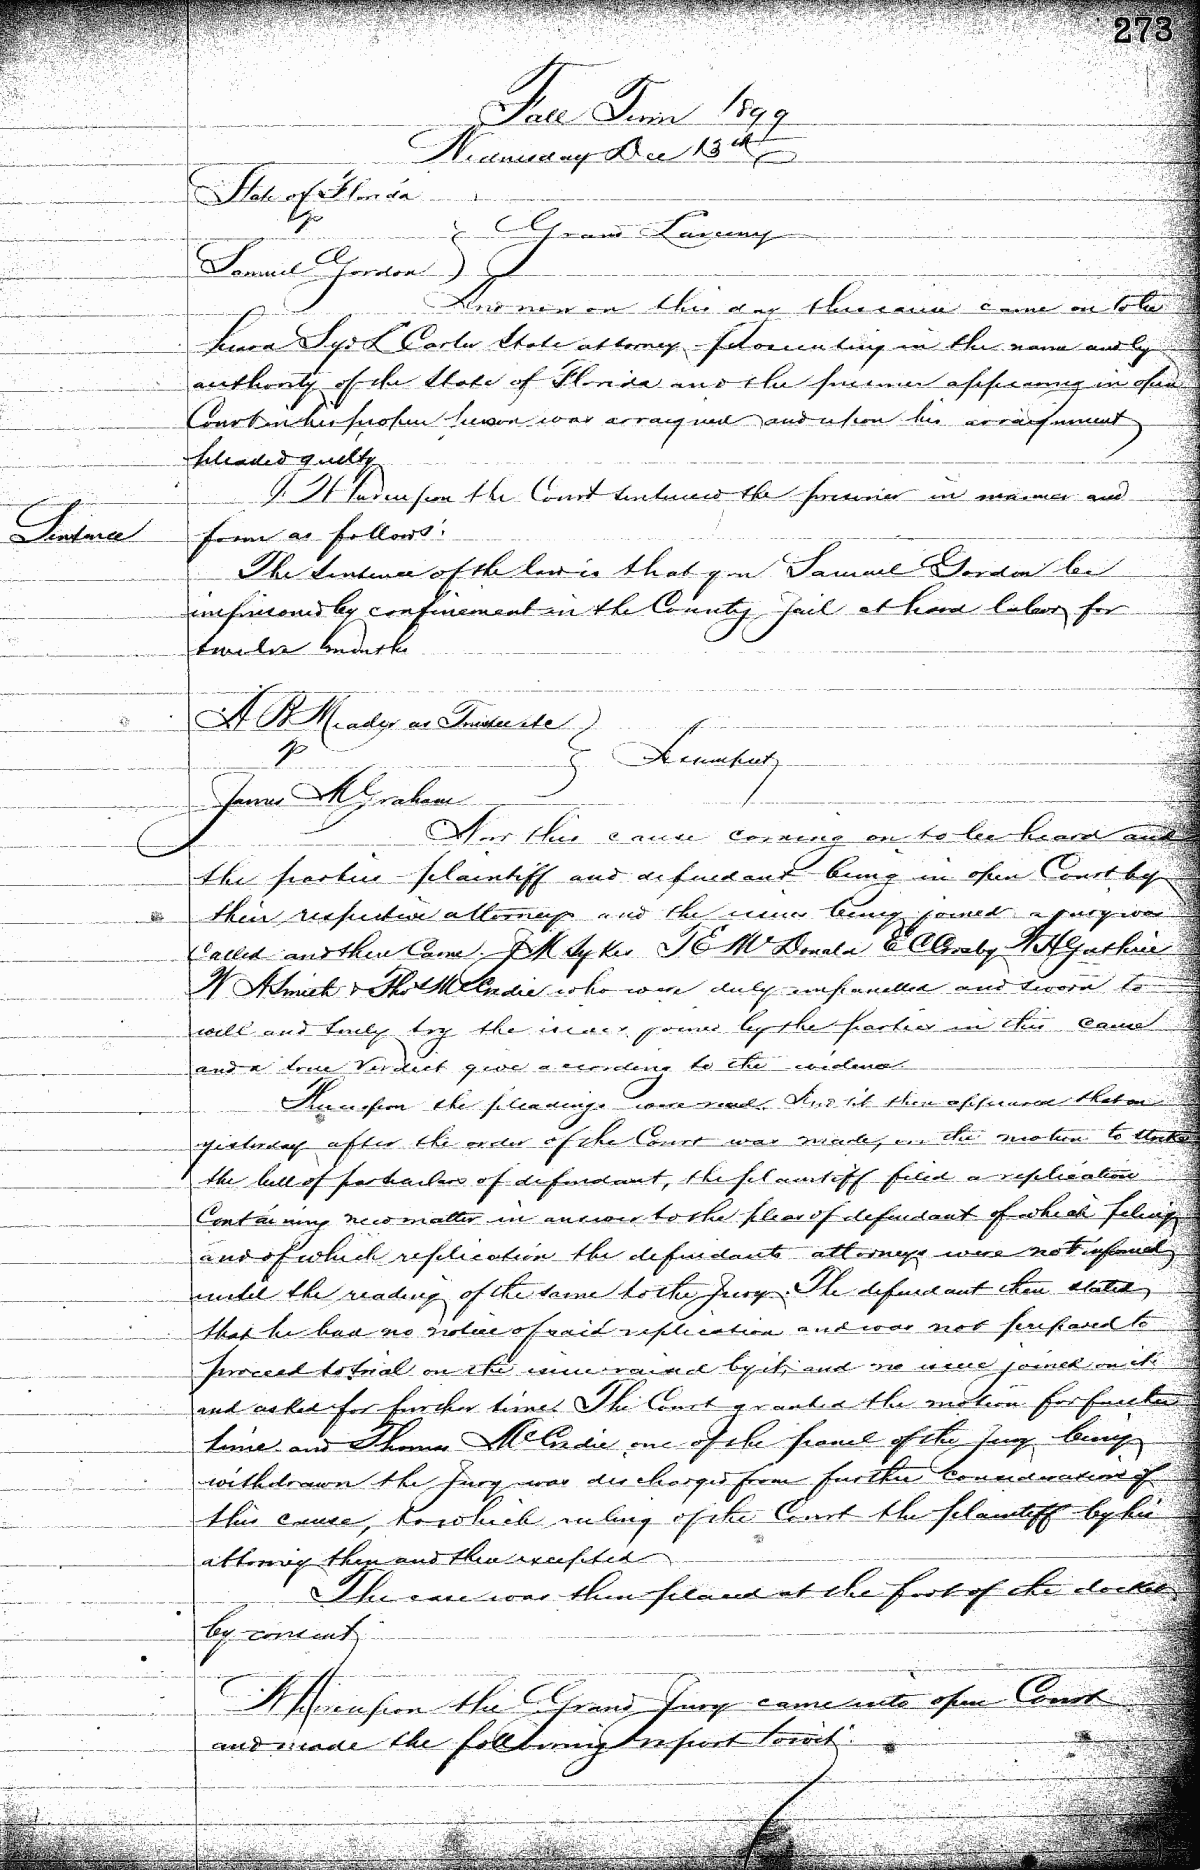 273
Fall Term 1899
Wednesday Dec 13th
State of Florida
vs
Grand Larceny
Samuel Gordon
And now on this day this cause came on to be
heard Syd L Carter State attorney prosecuting in the name and by
authority of the State of Florida and the prisoner appearing in open
Court in his proper person was arraigned and upon his arraignment
pleaded guilty
Whereupon the Court sentenced the prisoner in manner and
Sentence
form as follows:
The sentence of the law is that you Samuel Gordon be
imprisoned by confinement in the County Jail at hard labor for
twelve months
A B Meady as Trustee etc
vs
Assumpsit
James M Graham
Now this cause coming on to be heard and
the parties plaintiff and defendant being in open Court by
their respective attorneys and the issues being joined a jury was
called and then Came J M Sykes T E McDonald E C W H Guthrie
W A Smith & Thos McCredie who were duly empanelled and sworn to
well and truly try the issues joined by the parties in this cause
and a true Verdict give according to the evidence
Thereupon the pleadings were read. And it then appeared that on
yesterday after the order of the Court was made, on the motion to strike
the bill of particulars of defendant, the plaintiff filed a replication
Containing new matter in answer to the pleas of defendant of which filing
and of which replication the defendants attorneys were not informed
until the reading of the same to the Jury. The defendant then stated
that he had no notice of said replication and was not prepared to
proceed to trial on the issue raised by it, and no issue joined on it
and asked for further time. The Court granted the motion for further
time and Thomas McCredie one of the panel of the Jury being
withdrawn the Jury was discharged from further consideration of
this cause, to which ruling of the Court the plaintiff by his
attorney then and there excepted
The case was then placed at the foot of the docket
by consent
Whereupon the Grand Jury came into open Court
and made the following report towit: